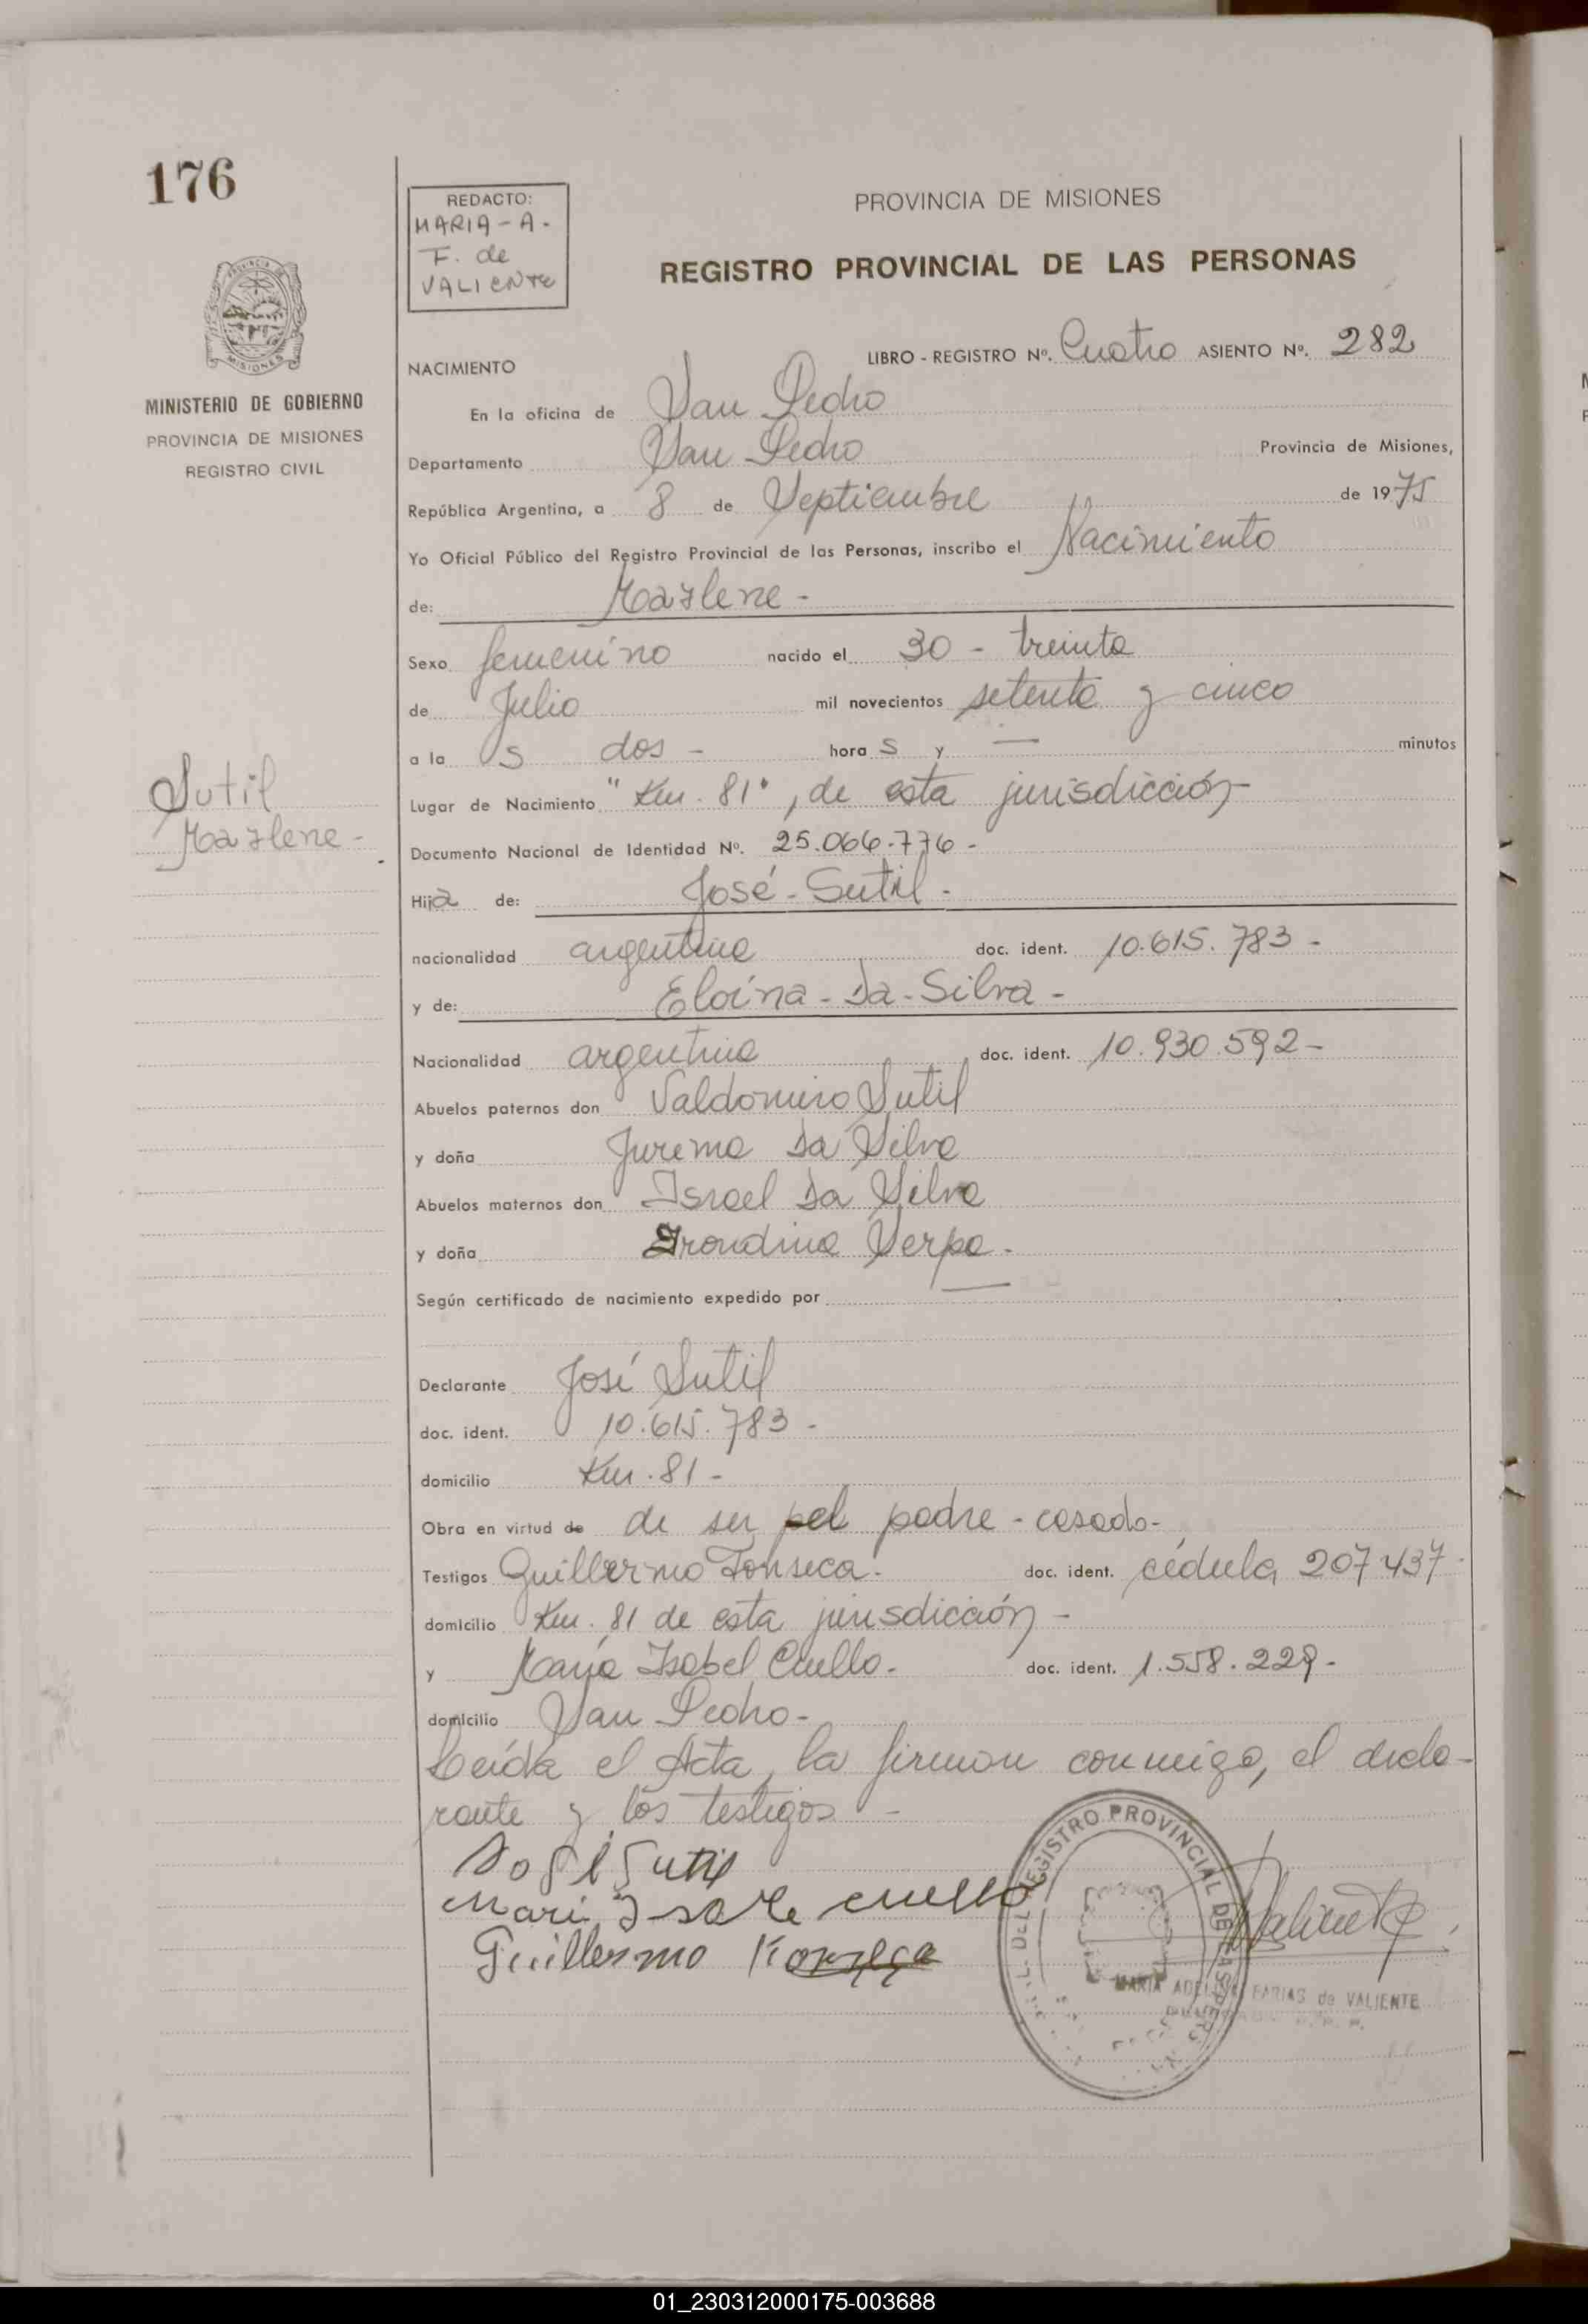 176
REDACTO:
MARIA - A -
F. de
VALIENTE
PROVINCIA DE MISIONES
REGISTRO PROVINCIAL DE LAS PERSONAS
PROVINCIA DE
MISIONES
MINISTERIO DE GOBIERNO
PROVINCIA DE MISIONES
REGISTRO CIVIL
LIBRO - REGISTRO Nº. Cuatro ASIENTO Nº. 282
NACIMIENTO
En la oficina de San Pedro
Departamento San Pedro Provincia de Misiones,
República Argentina, a 8 de Septiembre de 1975
Yo Oficial Público del Registro Provincial de las Personas, inscribo el Nacimiento
de: Marlene -
Sexo femenino nacido el 30 - treinta
de Julio mil novecientos setenta y cinco
a la s dos - hora s y — minutos
Sutil
Marlene -
Lugar de Nacimiento "Km. 81", de esta jurisdicción -
Documento Nacional de Identidad Nº. 25.066.776 -
Hija de: José - Sutil -
nacionalidad argentina doc. ident. 10.615.783 -
y de: Eloína - Da - Silva -
Nacionalidad argentina doc. ident. 10.930.592 -
Abuelos paternos don Valdomiro Sutil
y doña Jurema Da Silva
Abuelos maternos don Israel Da Silva
y doña Irondina Serpa -
Según certificado de nacimiento expedido por —
Declarante José Sutil
doc. ident. 10.615.783 -
domicilio Km. 81 -
Obra en virtud de de ser el padre - casado -
Testigos Guillermo Fonseca - doc. ident. cédula 207437 -
domicilio Km. 81 de esta jurisdicción -
y María Isabel Cuello - doc. ident. 1.558.229 -
domicilio San Pedro -
Leída el Acta, la firman conmigo, el decla-
rante y los testigos -
José Sutil
Mari Isabel cuello
Guillermo
REGISTRO PROVINCIAL DE LAS PERSONAS
Valiente
MARIA ADELA FARIAS de VALIENTE
01_230312000175-003688